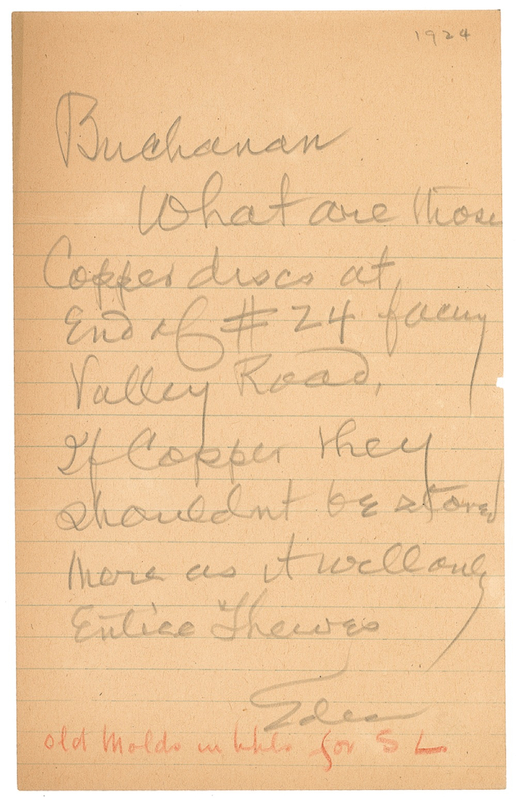 1924
Buchanan
What are those
Copper discs at
End of # 24 facing
Valley Road,
If Copper they
shouldnt be stored
there as it will only
Entice Thieves
old Molds in for S L